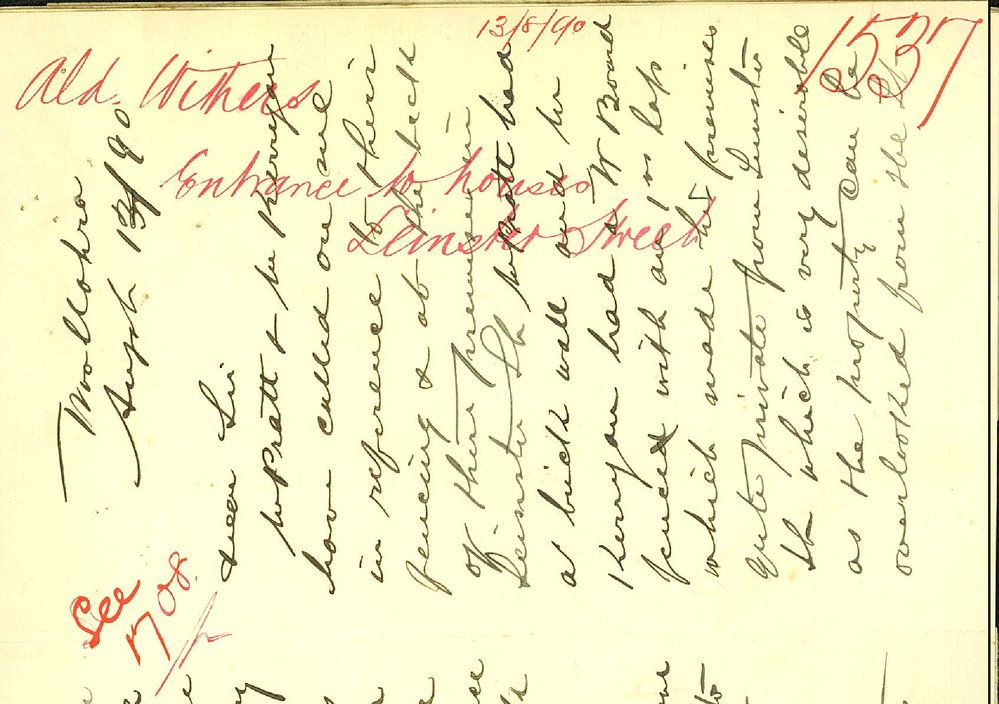 13/8/90
1537
Ald. Withers
Entrance to houses
Leinster Street
See
1708
Woollahra
Augst 13/90
Dear Sir
Mr Pratt & Mr Kerrigan
have called on me
in reference to their
fencing & at the back
of their premises in
Leinster St Mr Pratt had
a brick wall and Mr
Kerrigan had a W Board
fence with an
which made his premises
quite private from Leinster
St which is very desirable
as the property can be
overlooked from the St